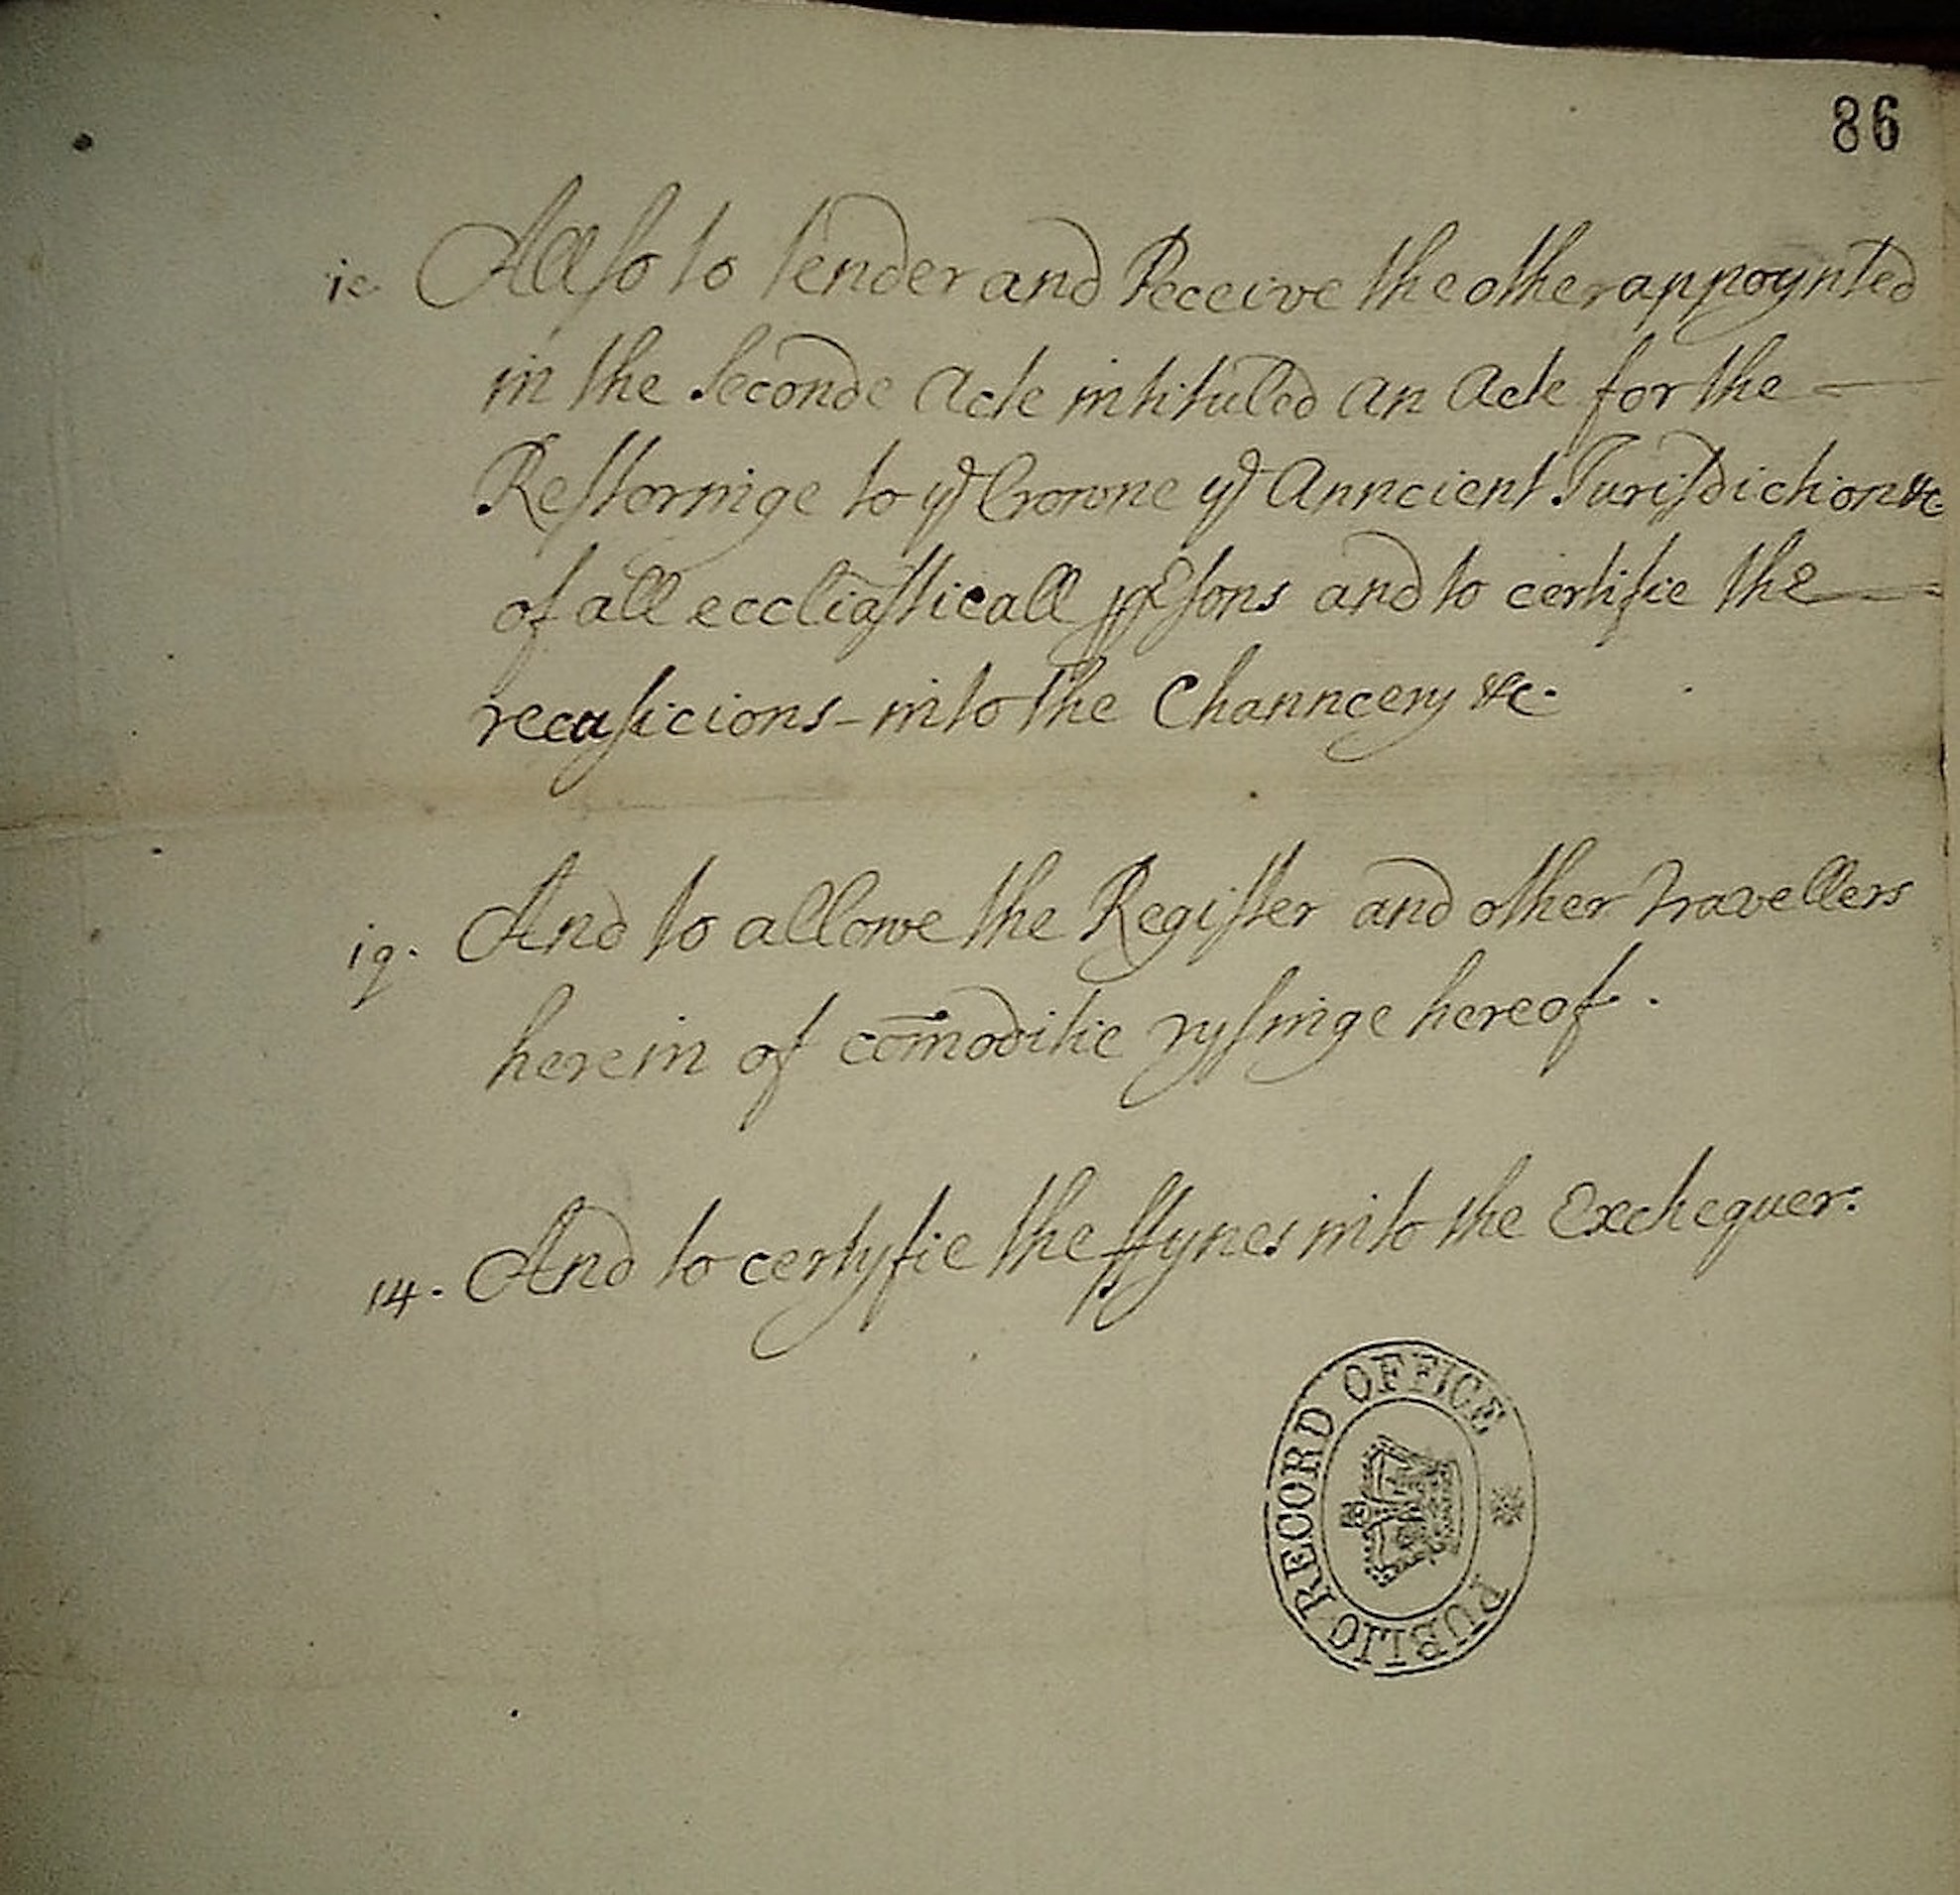 86
ie. Allso to tender and Receive the other appoynted
in the Seconde Acte intituled an Acte for the
Restoringe to ye Crowne ye Anncient Jurisdiction &c
of all eccliasticall psons and to certifie the
recusicions - into the Channcery &c.
iq. And to allowe the Register and other travellers
herein of com̄oditie rysinge hereof.
14. And to certyfie the ffynes into the Exchequer.
PUBLIC RECORD OFFICE